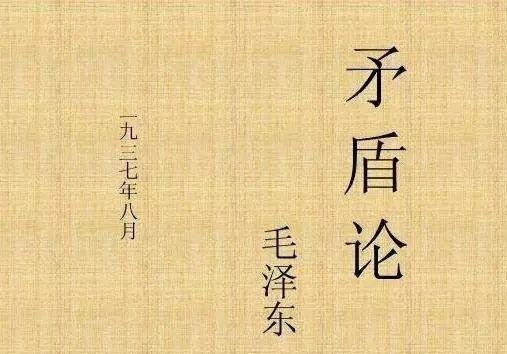 矛盾论
毛泽东
一九三七年八月